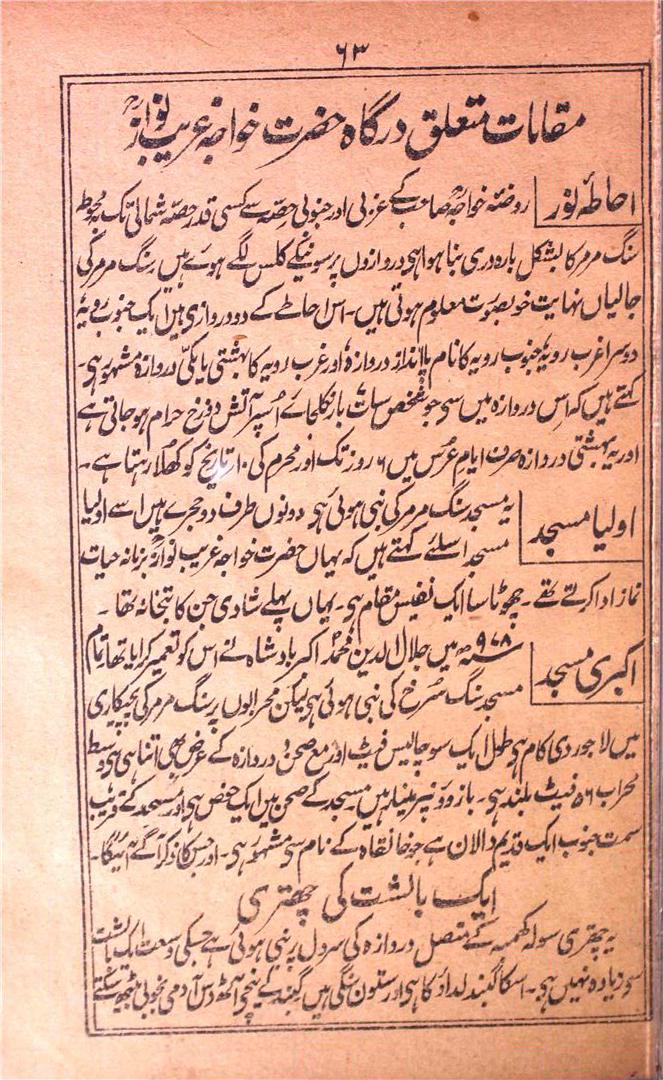 ۶۳
مقامات متعلق درگاہ حضرت خواجہ غریب نوازؒ
احاطۂ نور روضۂ خواجہ صاحبؒ کے غربی اور جنوبی حصہ سے کسی قدر حصہ شمالی تک محوطہ
سنگ مرمر کا بشکل بارہ دری بنا ہوا ہی دروازوں پر سونیکے کلس لگے ہوئے ہیں سنگ مرمر کی
جالیاں نہایت خوبصورت معلوم ہوتی ہیں۔ اس احاطے کے دو دروازی ہیں ایک جنوب رویہ
دوسرا غرب رویہ جنوب رویہ کا نام پائنداز دروازہ اور غرب رویہ کا بہشتی یا مکی دروازہ مشہور ہی۔
کہتے ہیں کہ اس دروازہ میں سی جو شخص سات بار نکلجائے اُسپر آتش دوزخ حرام ہو جاتی ہے
اور یہ بہشتی دروازہ صرف ایام عرس میں ۶ روز تک اور محرم کی ۱۰ تاریخ کو کھلا رہتا ہے۔
اولیا مسجد یہ مسجد سنگ مرمر کی بنی ہوئی ہی دونوں طرف دو حجرے ہیں اسے اولیا
مسجد اسلئے کہتے ہیں کہ یہاں حضرت خواجہ غریب نوازؒ بزمانہ حیات
نماز ادا کرتے تھے۔ چھوٹا سا ایک نفیس مقام ہی۔ یہاں پہلے شادی جن کا بتخانہ تھا۔
اکبری مسجد سنہ ۹۷۸ھ میں جلال الدین محمد اکبر بادشاہ نے اس کو تعمیر کرایا تھا تمام
مسجد سنگ سرخ کی بنی ہوئی ہی لیکن محرابوں پر سنگ مرمر کی پچیکاری
میں لاجوردی کام ہی طول ایک سو چالیس فیٹ اور مع صحن و دروازہ کے عرض بھی اتنا ہی ہی وسط
محراب ۵۶ فیٹ بلند ہی۔ بازوونپر مینار ہیں۔ مسجد کے صحن میں ایک حوض ہی اور مسجد کے قریب
سمت جنوب ایک قدیم دالان ہے جو خانقاہ کے نام سی مشہور ہی۔ اور جس کا ذکر آگے آئیگا۔
ایک بالشت کی چھتری
یہ چھتری سولہ کھمبہ کے متصل دروازہ کی سردل پر بنی ہوئی ہے جسکی وسعت ایک بالشت
سی زیادہ نہیں ہی۔ اسکا گنبد لداؤ کا ہی اور ستون سنگی ہیں گنبد کے نیچے آٹھ دس آدمی بخوبی بیٹھ سکتے